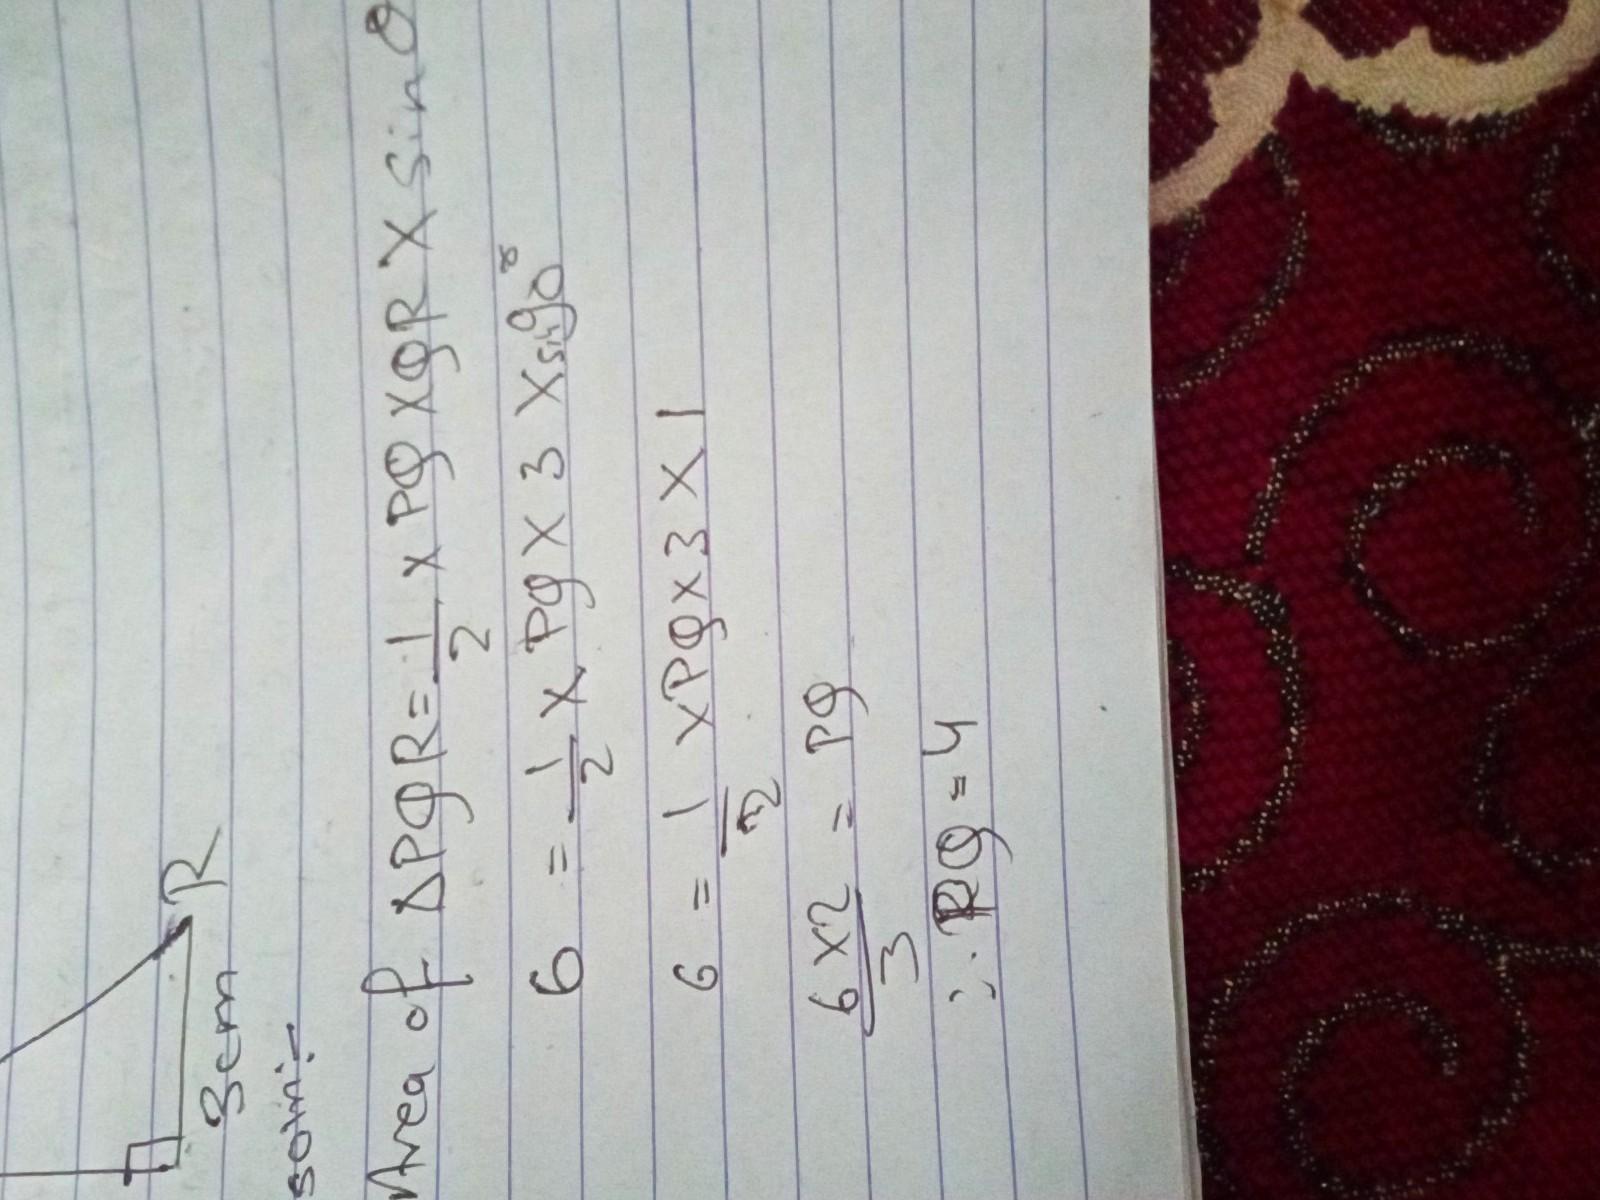 R
3cm
soln:-
Area of ΔPQR = 1/2 x PQ x QR x sinθ
6 = 1/2 x PQ x 3 x sin90°
6 = 1/2 x PQ x 3 x 1
6x2/3 = PQ
∴ PQ = 4